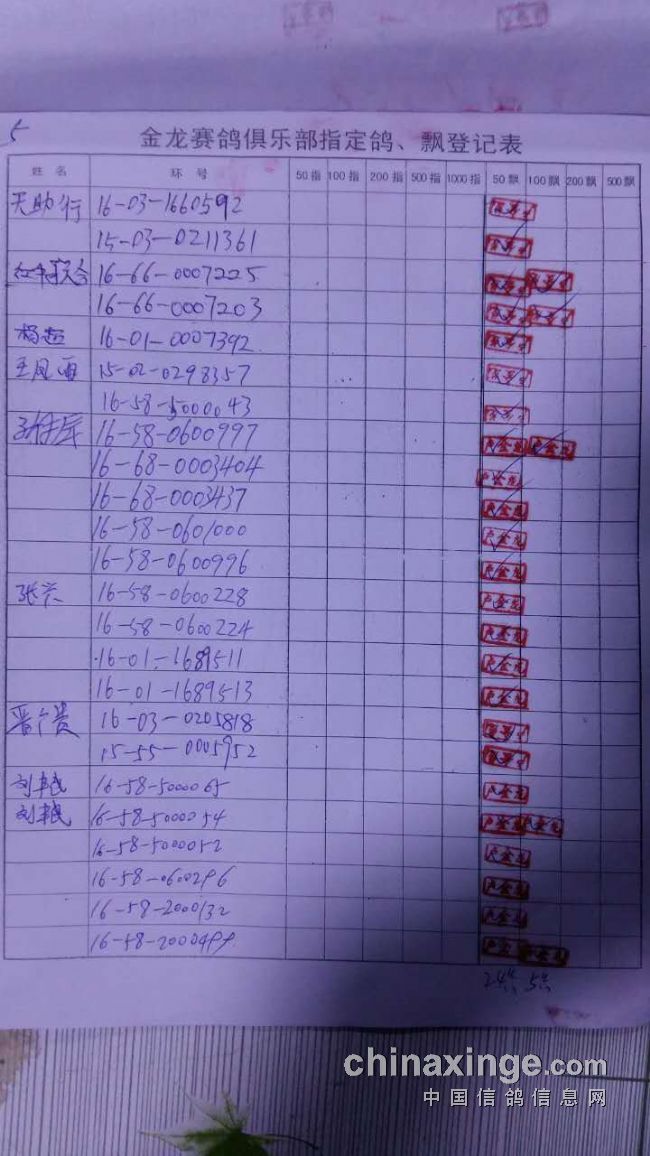 5
金龙赛鸽俱乐部指定鸽、飘登记表
姓名 环号 50指 100指 200指 500指 1000指 50飘 100飘 200飘 500飘
天助行 16-03-1660592
15-03-0211361
16-66-0007225
16-66-0007203
杨超 16-01-0007392
王凤 15-02-0298357
16-58-5000043
16-58-0600997
16-68-0003404
16-68-0003437
16-58-0601000
16-58-0600996
张兴 16-58-0600228
16-58-0600224
16-01-1689511
16-01-1689513
16-03-0205818
15-55-0005952
刘 16-58-5000065
刘 16-58-5000054
16-58-5000052
16-58-0600296
16-58-2000132
16-58-2000499
24 5
chinaxinge.com
中国信鸽信息网